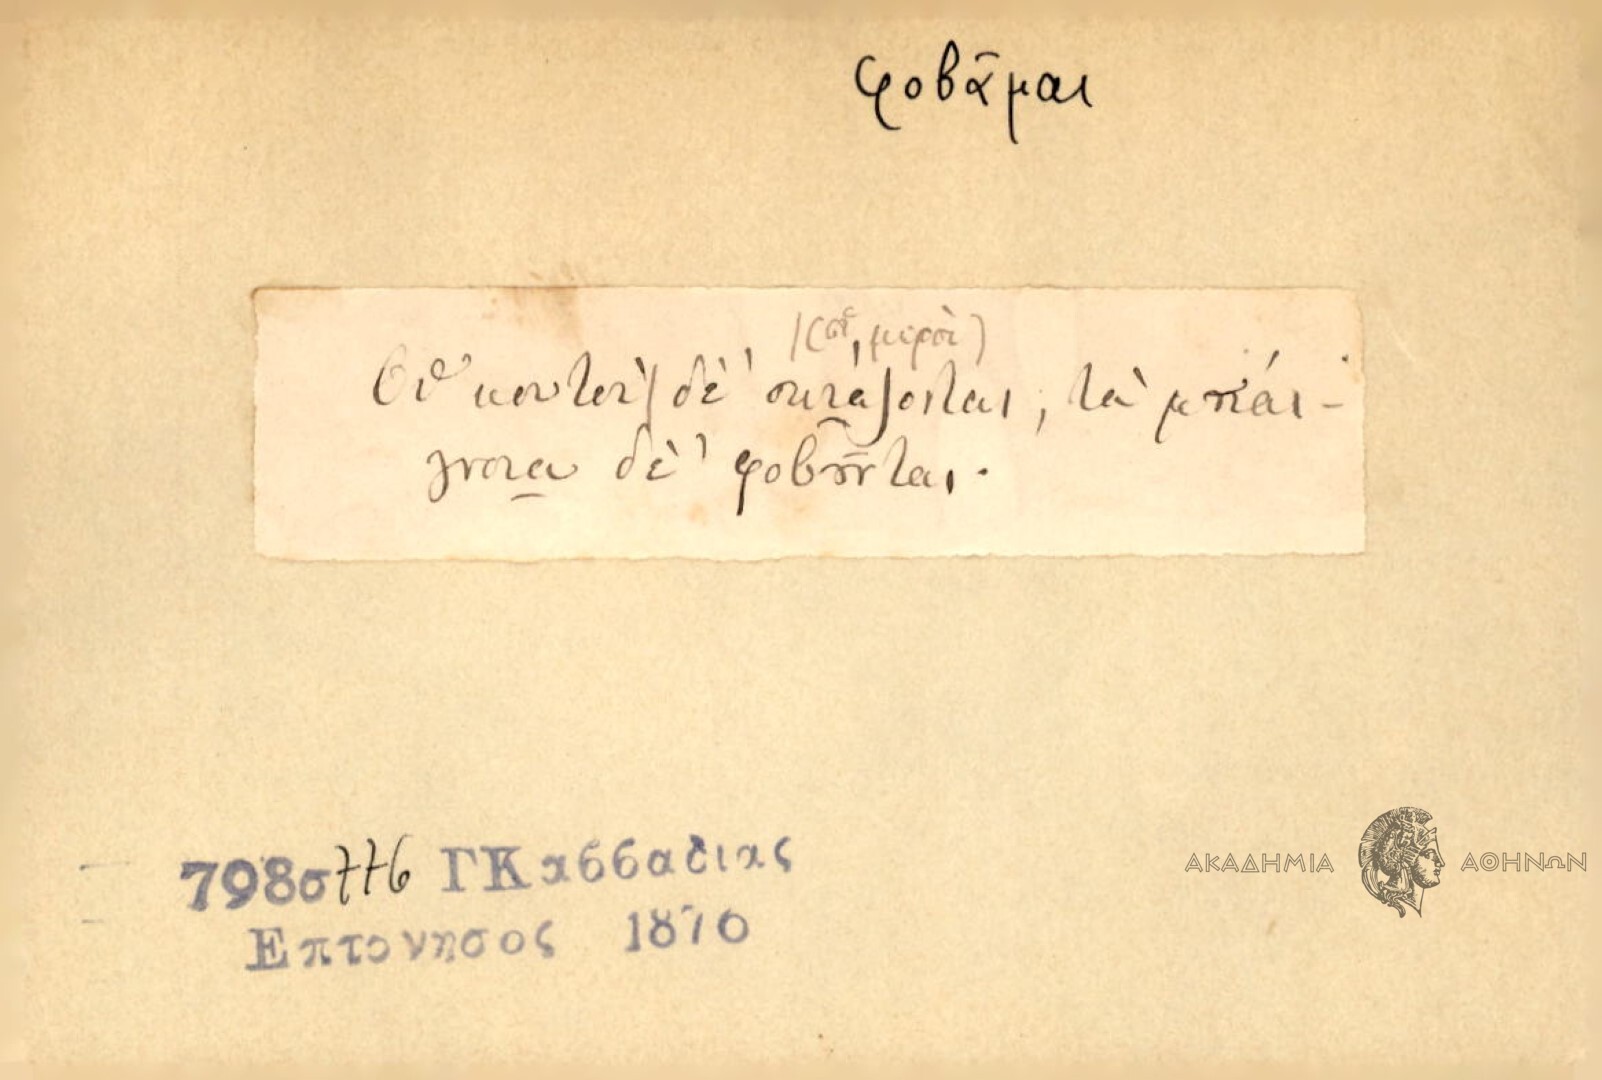 φοβᾶμαι
μικροὶ
κοντοὶ δὲ σκιάζονται, τὰ μπάι-
γνοια δὲ φοβοῦνται.
798σ776 ΓΚασσαδιας
Επτονησος 1876
ΑΚΑΔΗΜΙΑ ΑΘΗΝΩΝ